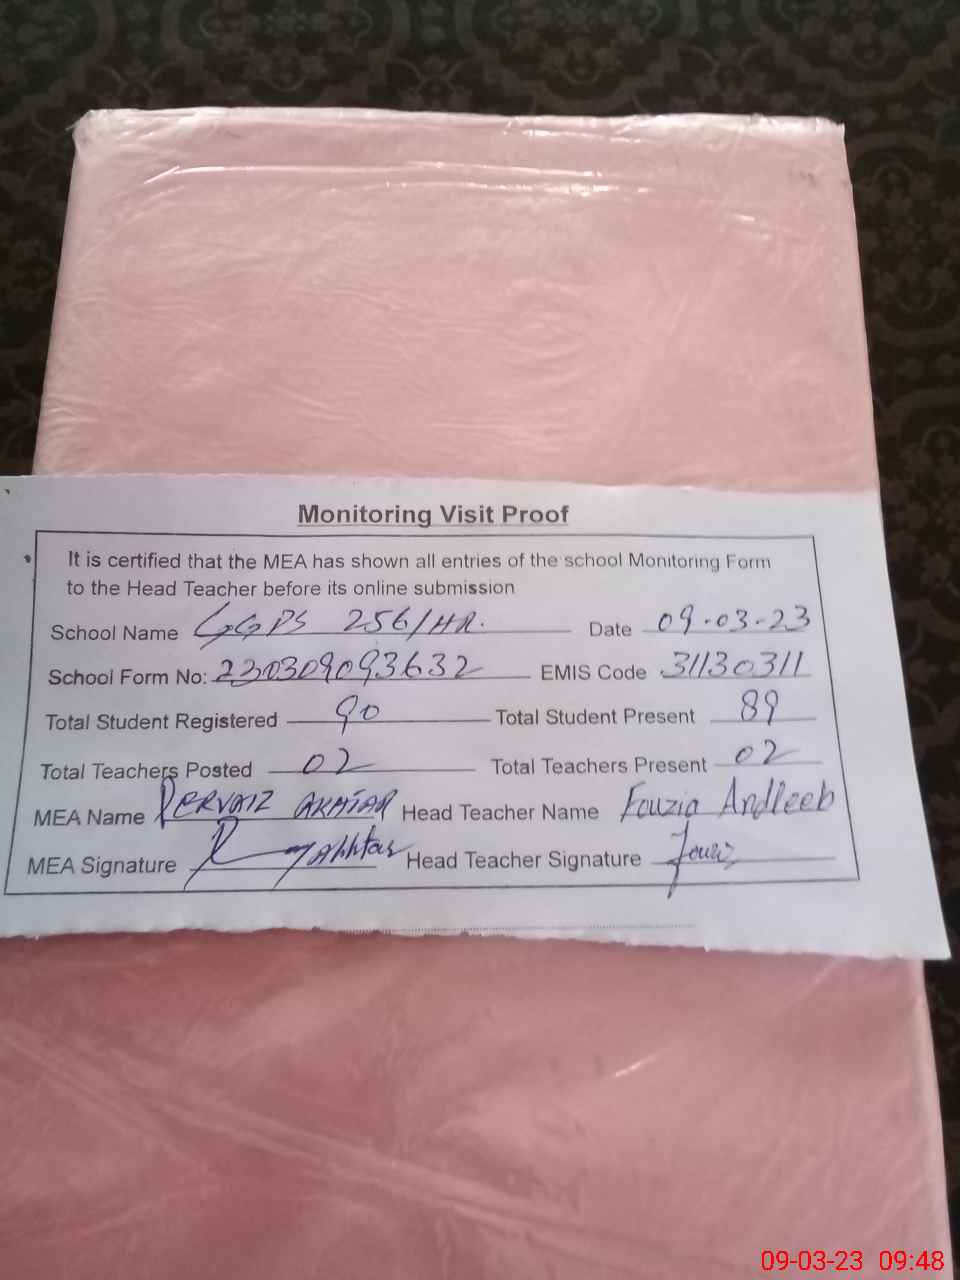 Monitoring Visit Proof
It is certified that the MEA has shown all entries of the school Monitoring Form
to the Head Teacher before its online submission
School Name GGPS 256/HR. Date 09-03-23
School Form No: 230309093632 EMIS Code 31130311
Total Student Registered 90 Total Student Present 89
Total Teachers Posted 02 Total Teachers Present 02
MEA Name PERVAIZ AKHTAR Head Teacher Name Fouzia Andleeb
MEA Signature Akhtar Head Teacher Signature
09-03-23 09:48